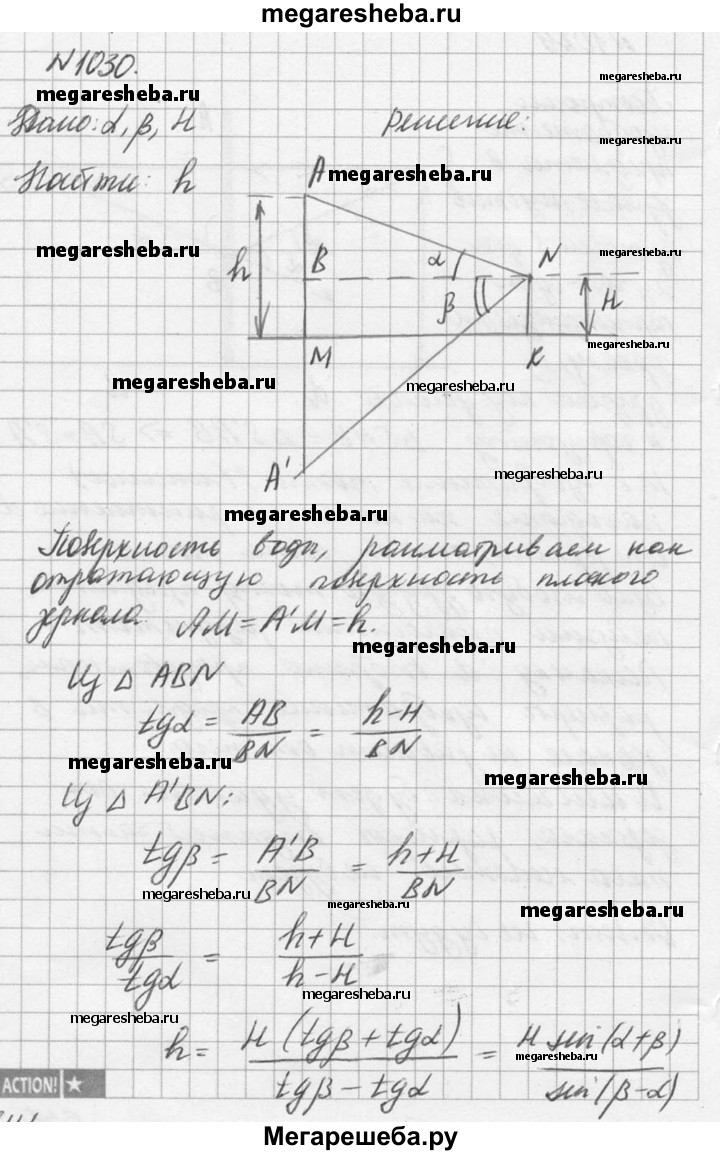 megaresheba.ru
N1030.
megaresheba.ru
megaresheba.ru
Дано: α, β, H
Решение:
megaresheba.ru
Найти: h
A
megaresheba.ru
megaresheba.ru
megaresheba.ru
h
B
α
N
β
H
M
K
megaresheba.ru
megaresheba.ru
megaresheba.ru
A'
megaresheba.ru
megaresheba.ru
Поверхность воды, рассматриваем как
отражающую поверхность плоского
зеркала. AM = A'M = h.
megaresheba.ru
Из Δ ABN
tgα = AB/BN = h-H/BN
megaresheba.ru
megaresheba.ru
Из Δ A'BN:
tgβ = A'B/BN = h+H/BN
megaresheba.ru
megaresheba.ru
megaresheba.ru
tgβ/tgα = h+H/h-H
megaresheba.ru
megaresheba.ru
h = H(tgβ+tgα)/tgβ-tgα = H sin(α+β)/sin(β-α)
megaresheba.ru
ACTION!
Мегарешеба.ру